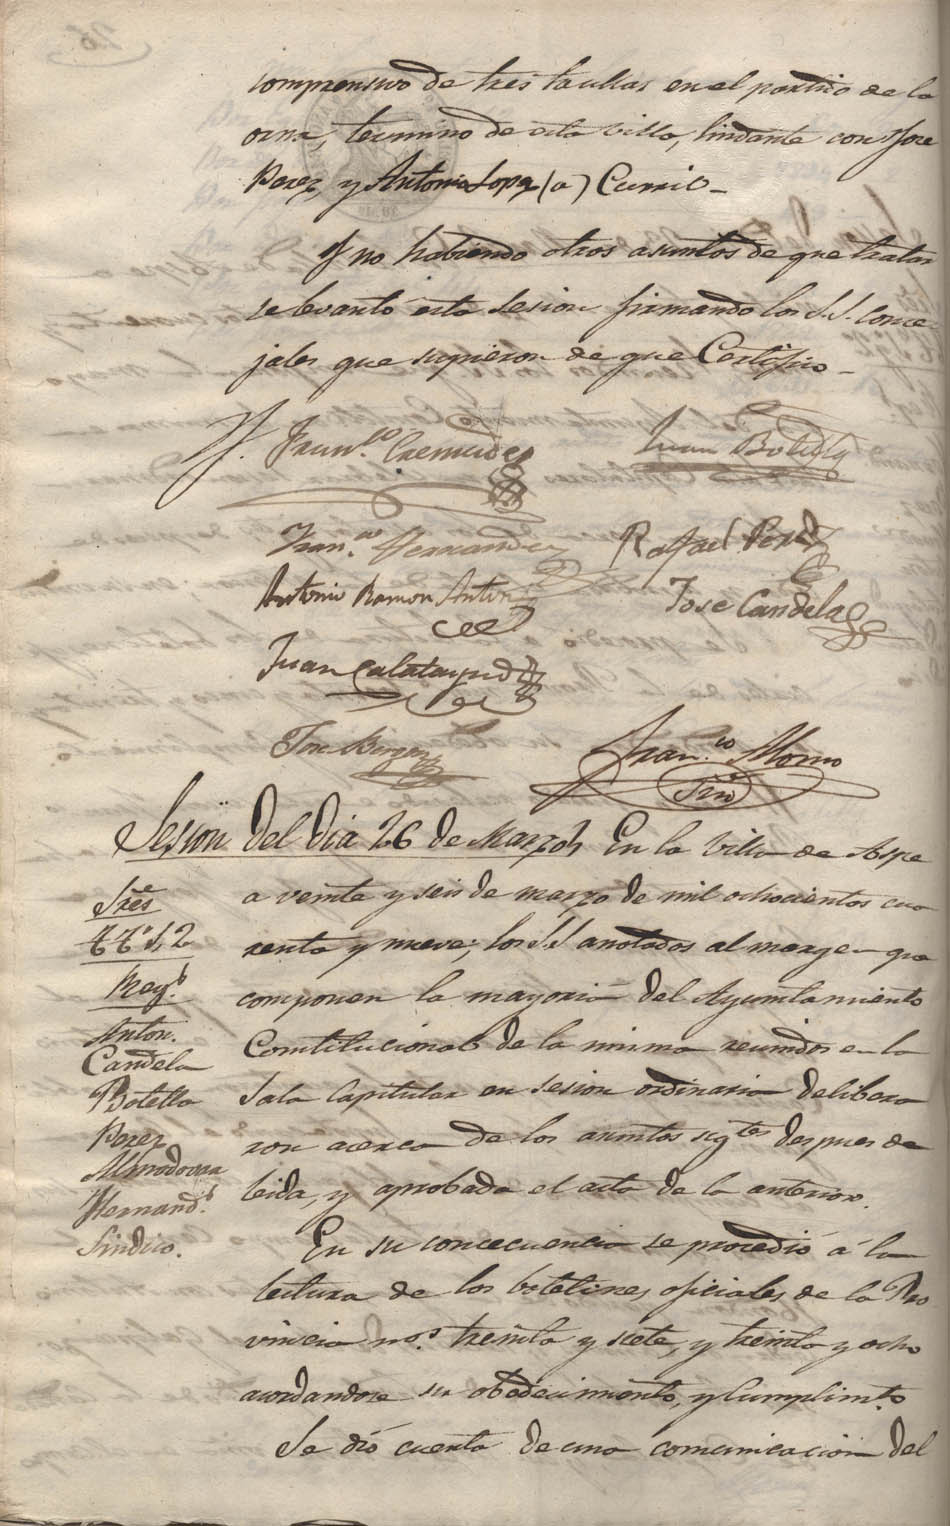 comprensivo de tres taullas en el partido de la
orna, termino de esta villa, lindante con Jose
Perez, y Antonio Lopez (a) Currio
Y no habiendo otros asuntos de que tratar
se levantó esta sesion firmando los S.S. Conce-
jales que supieron de que Certifico
Fran.co Cremades
Juan Botella
Fran.co Hernandez
Rafael Perez
Antonio Ramon Anton
Jose Candela
Juan Calatayud
Jose
Fran.co Alonso
Srio
Sesion del dia 26 de Marzo
En la Villa de Aspe
a veinte y seis de marzo de mil ochocientos cua
renta y nueve; los S.S anotados al margen que
componen la mayoria del Ayuntamiento
Constitucional de la misma reunidos en la
Sala Capitular en sesion ordinaria delibera
ron acerca de los asuntos sigtes despues de
leida, y aprobada el acta de la anterior.
Sres
TTs 1, 2
Reg.s
Anton.
Candela
Botella
Perez
Almodovar
Hernand.s
Sindico.
En su concecuencia se procedió á la
lectura de los boletines oficiales de la Pro
vincia nos. treinta y siete, y treinta y ocho
acordandose su obedecimiento, y Cumplimto
Se dió cuenta de una comunicacion del